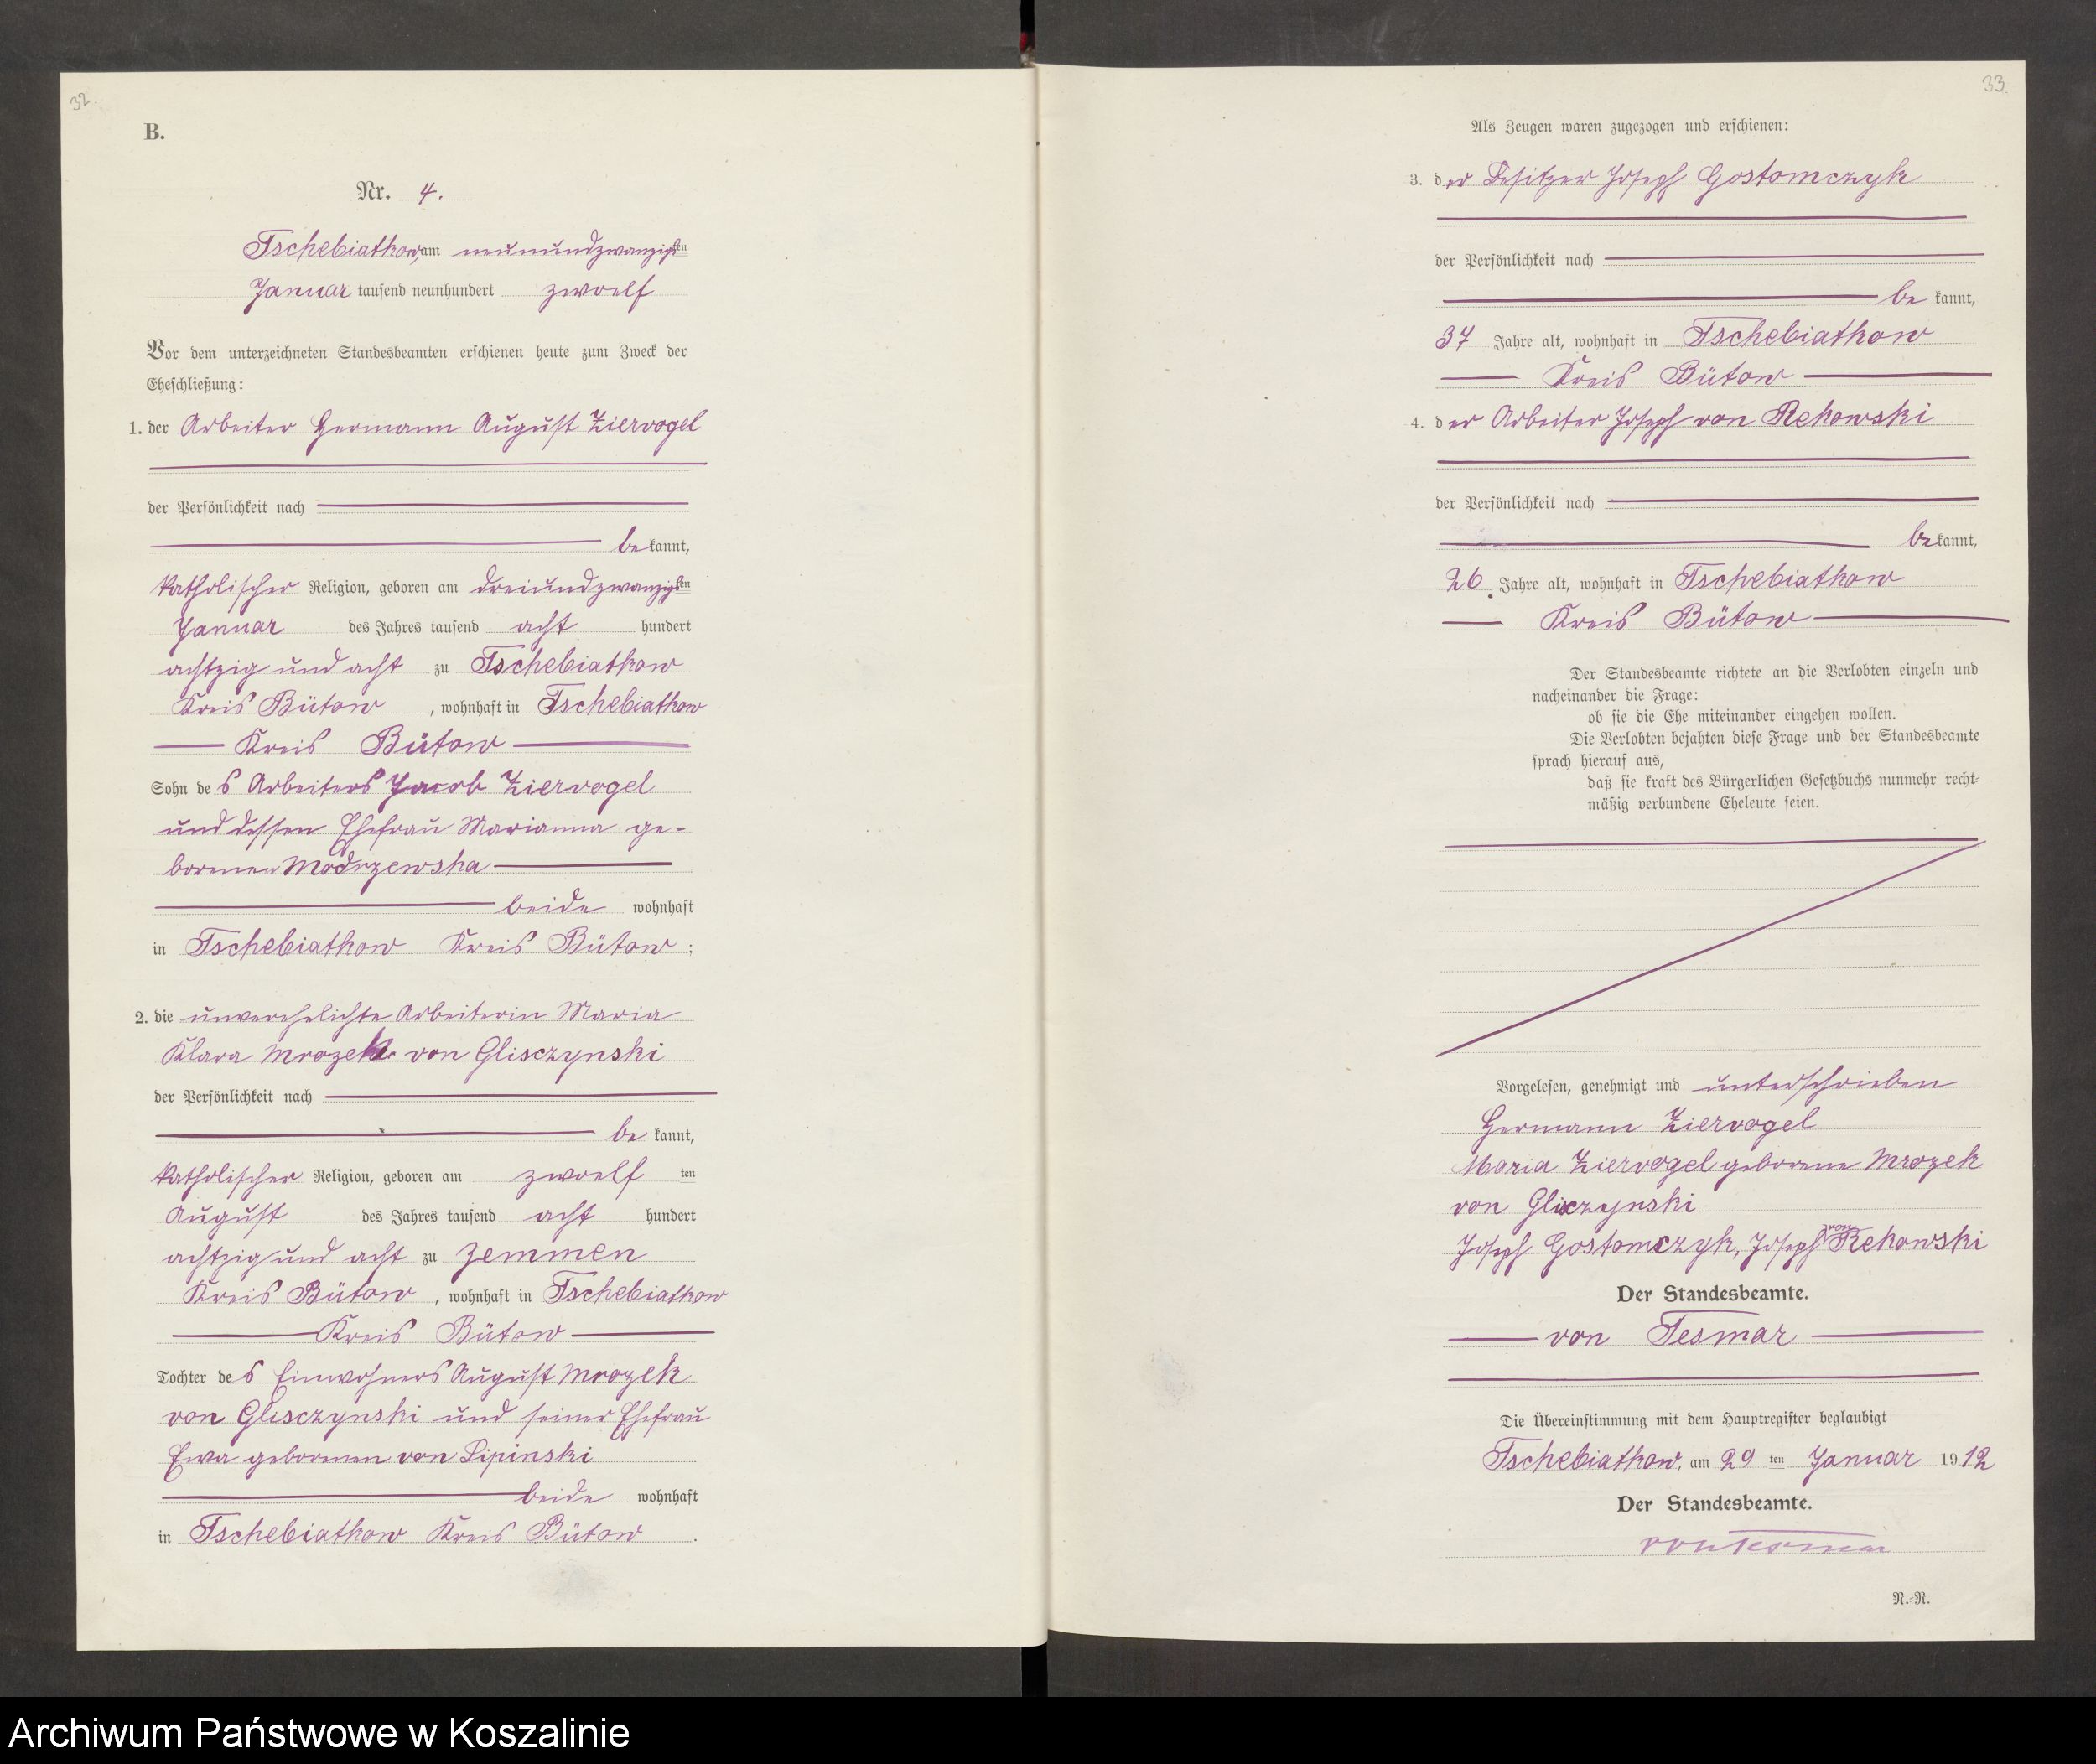 32.
B.
Nr. 4.
Tschebiatkow, am neunundzwanzigsten
Januar tausend neunhundert zwoelf
Vor dem unterzeichneten Standesbeamten erschienen heute zum Zweck der
Eheschließung:
1. der Arbeiter Hermann August Ziervogel
der Persönlichkeit nach
bekannt,
katholischer Religion, geboren am dreiundzwanzigsten
Januar des Jahres tausend acht hundert
achtzig und acht zu Tschebiatkow
Kreis Bütow, wohnhaft in Tschebiatkow
Kreis Bütow
Sohn des Arbeiters Jacob Ziervogel
und dessen Ehefrau Marianna ge-
borenen Modrzewska
beide wohnhaft
in Tschebiatkow Kreis Bütow;
2. die unverehelichte Arbeiterin Maria
Klara Mrozek von Glisczynski
der Persönlichkeit nach
be kannt,
katholischer Religion, geboren am zwoelf ten
August des Jahres tausend acht hundert
achtzig und acht zu Zemmen
Kreis Bütow, wohnhaft in Tschebiatkow
Kreis Bütow
Tochter des Einwohners August Mrozek
von Glisczynski und seiner Ehefrau
Ewa geborenen von Lipinski
beide wohnhaft
in Tschebiatkow Kreis Bütow.
33
Als Zeugen waren zugezogen und erschienen:
3. der Besitzer Joseph Gostomczyk
der Persönlichkeit nach
be kannt,
37 Jahre alt, wohnhaft in Tschebiatkow
Kreis Bütow
4. der Arbeiter Joseph von Rekowski
der Persönlichkeit nach
bekannt,
26 Jahre alt, wohnhaft in Tschebiatkow
Kreis Bütow
Der Standesbeamte richtete an die Verlobten einzeln und
nacheinander die Frage:
ob sie die Ehe miteinander eingehen wollen.
Die Verlobten bejahten diese Frage und der Standesbeamte
sprach hierauf aus,
daß sie kraft des Bürgerlichen Gesetzbuchs nunmehr recht-
mäßig verbundene Eheleute seien.
Vorgelesen, genehmigt und unterschrieben
Hermann Ziervogel
Maria Ziervogel geborene Mrozek
von Glisczynski
Joseph Gostomczyk, Joseph von Rekowski
Der Standesbeamte.
von Tesmar
Die Übereinstimmung mit dem Hauptregister beglaubigt
Tschebiatkow, am 29 ten Januar 1912
Der Standesbeamte.
von Tesmar
N.-R.
Archiwum Państwowe w Koszalinie